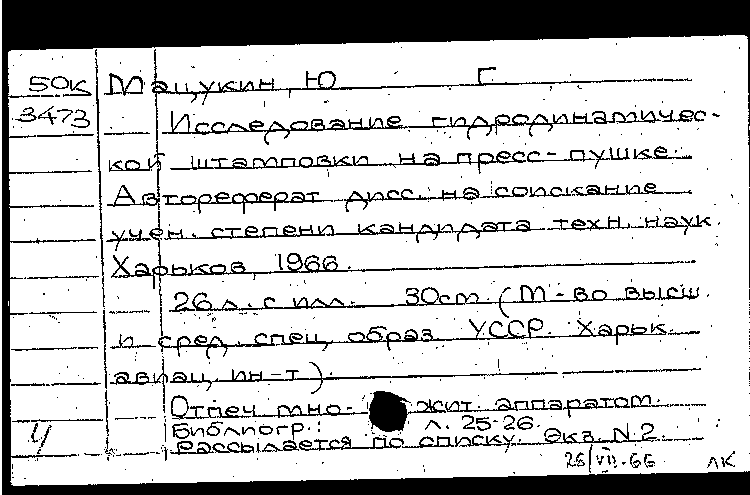 50к Мацукин, Ю Г.
3473 Исследование гидродинамичес-
кой штамповки на пресс-пушке.
Автореферат дисс. на соискание
учен. степени кандидата техн. наук.
Харьков, 1966.
26 л. с илл. 30см. (М-во высш.
и сред. спец. образ. УССР. Харьк.
авиац. ин-т).
Отпеч. мно- жит. аппаратом.
Библиогр.: л. 25-26.
Рассылается по списку. Экз. N2.
28/VII-66 ЛК